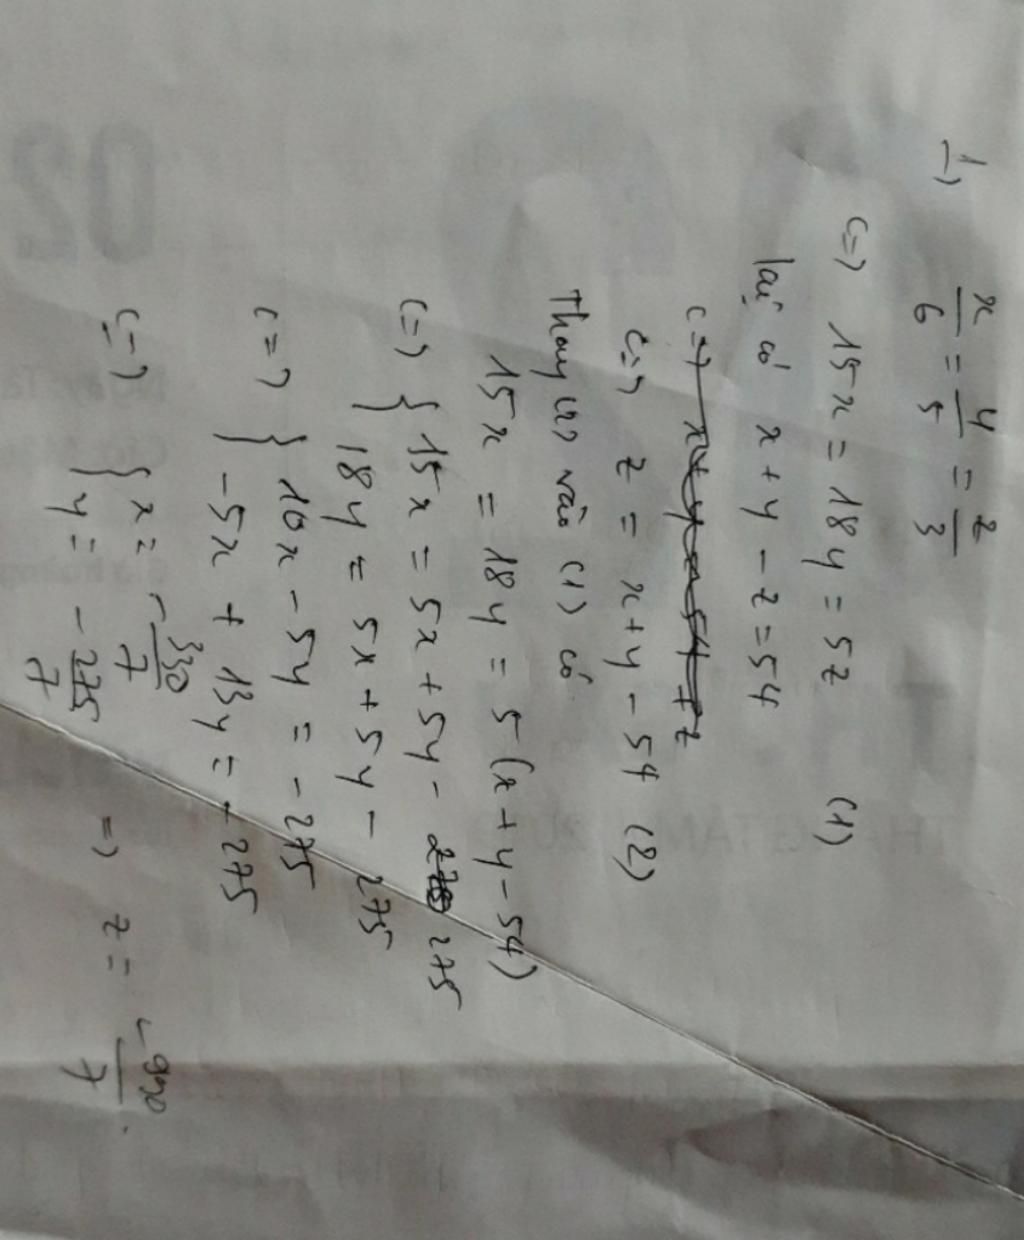 1)
x/6 = y/5 = z/3
<=> 15x = 18y = 5z (1)
lại có x + y - z = 54
<=> z = x + y - 54 (2)
Thay (2) vào (1) có
15x = 18y = 5(x + y - 54)
<=> { 15x = 5x + 5y - 275
18y = 5x + 5y - 275
<=> { 10x - 5y = - 275
-5x + 13y = - 275
<=> { x = - 330/7
y = - 275/7 => z =
02